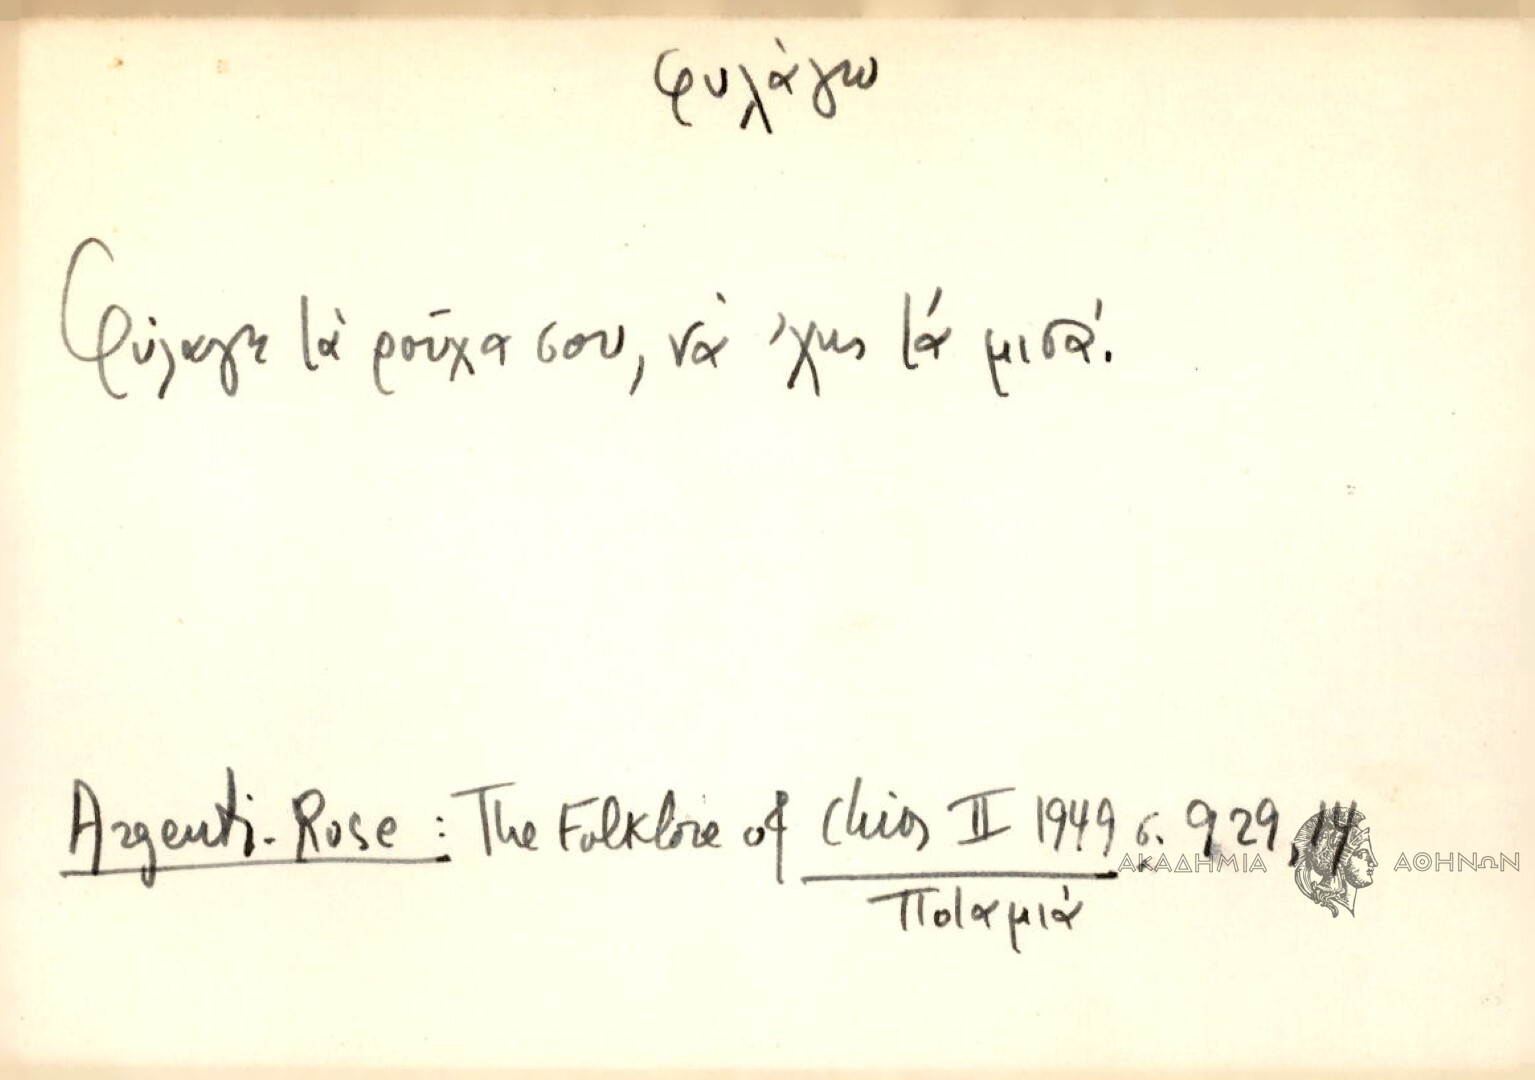 φυλάγω
Φύλαγε τὰ ροῦχα σου, νὰ ᾿χῃς τά μισά.
Argenti-Rose: The Folklore of Chios II 1949 σ. 929,14
Ποταμιά
ΑΚΑΔΗΜΙΑ ΑΘΗΝΩΝ